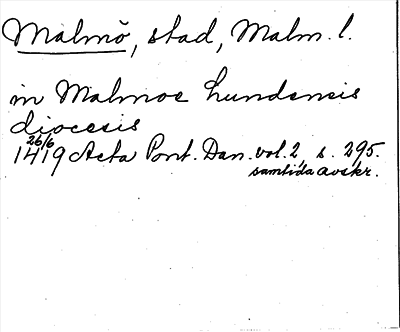 Malmö, stad, Malm. l.
in Malmoe Lundensis
diocesis
26/6
1419 Acta Pont. Dan. vol. 2, s. 295.
samtida avskr.